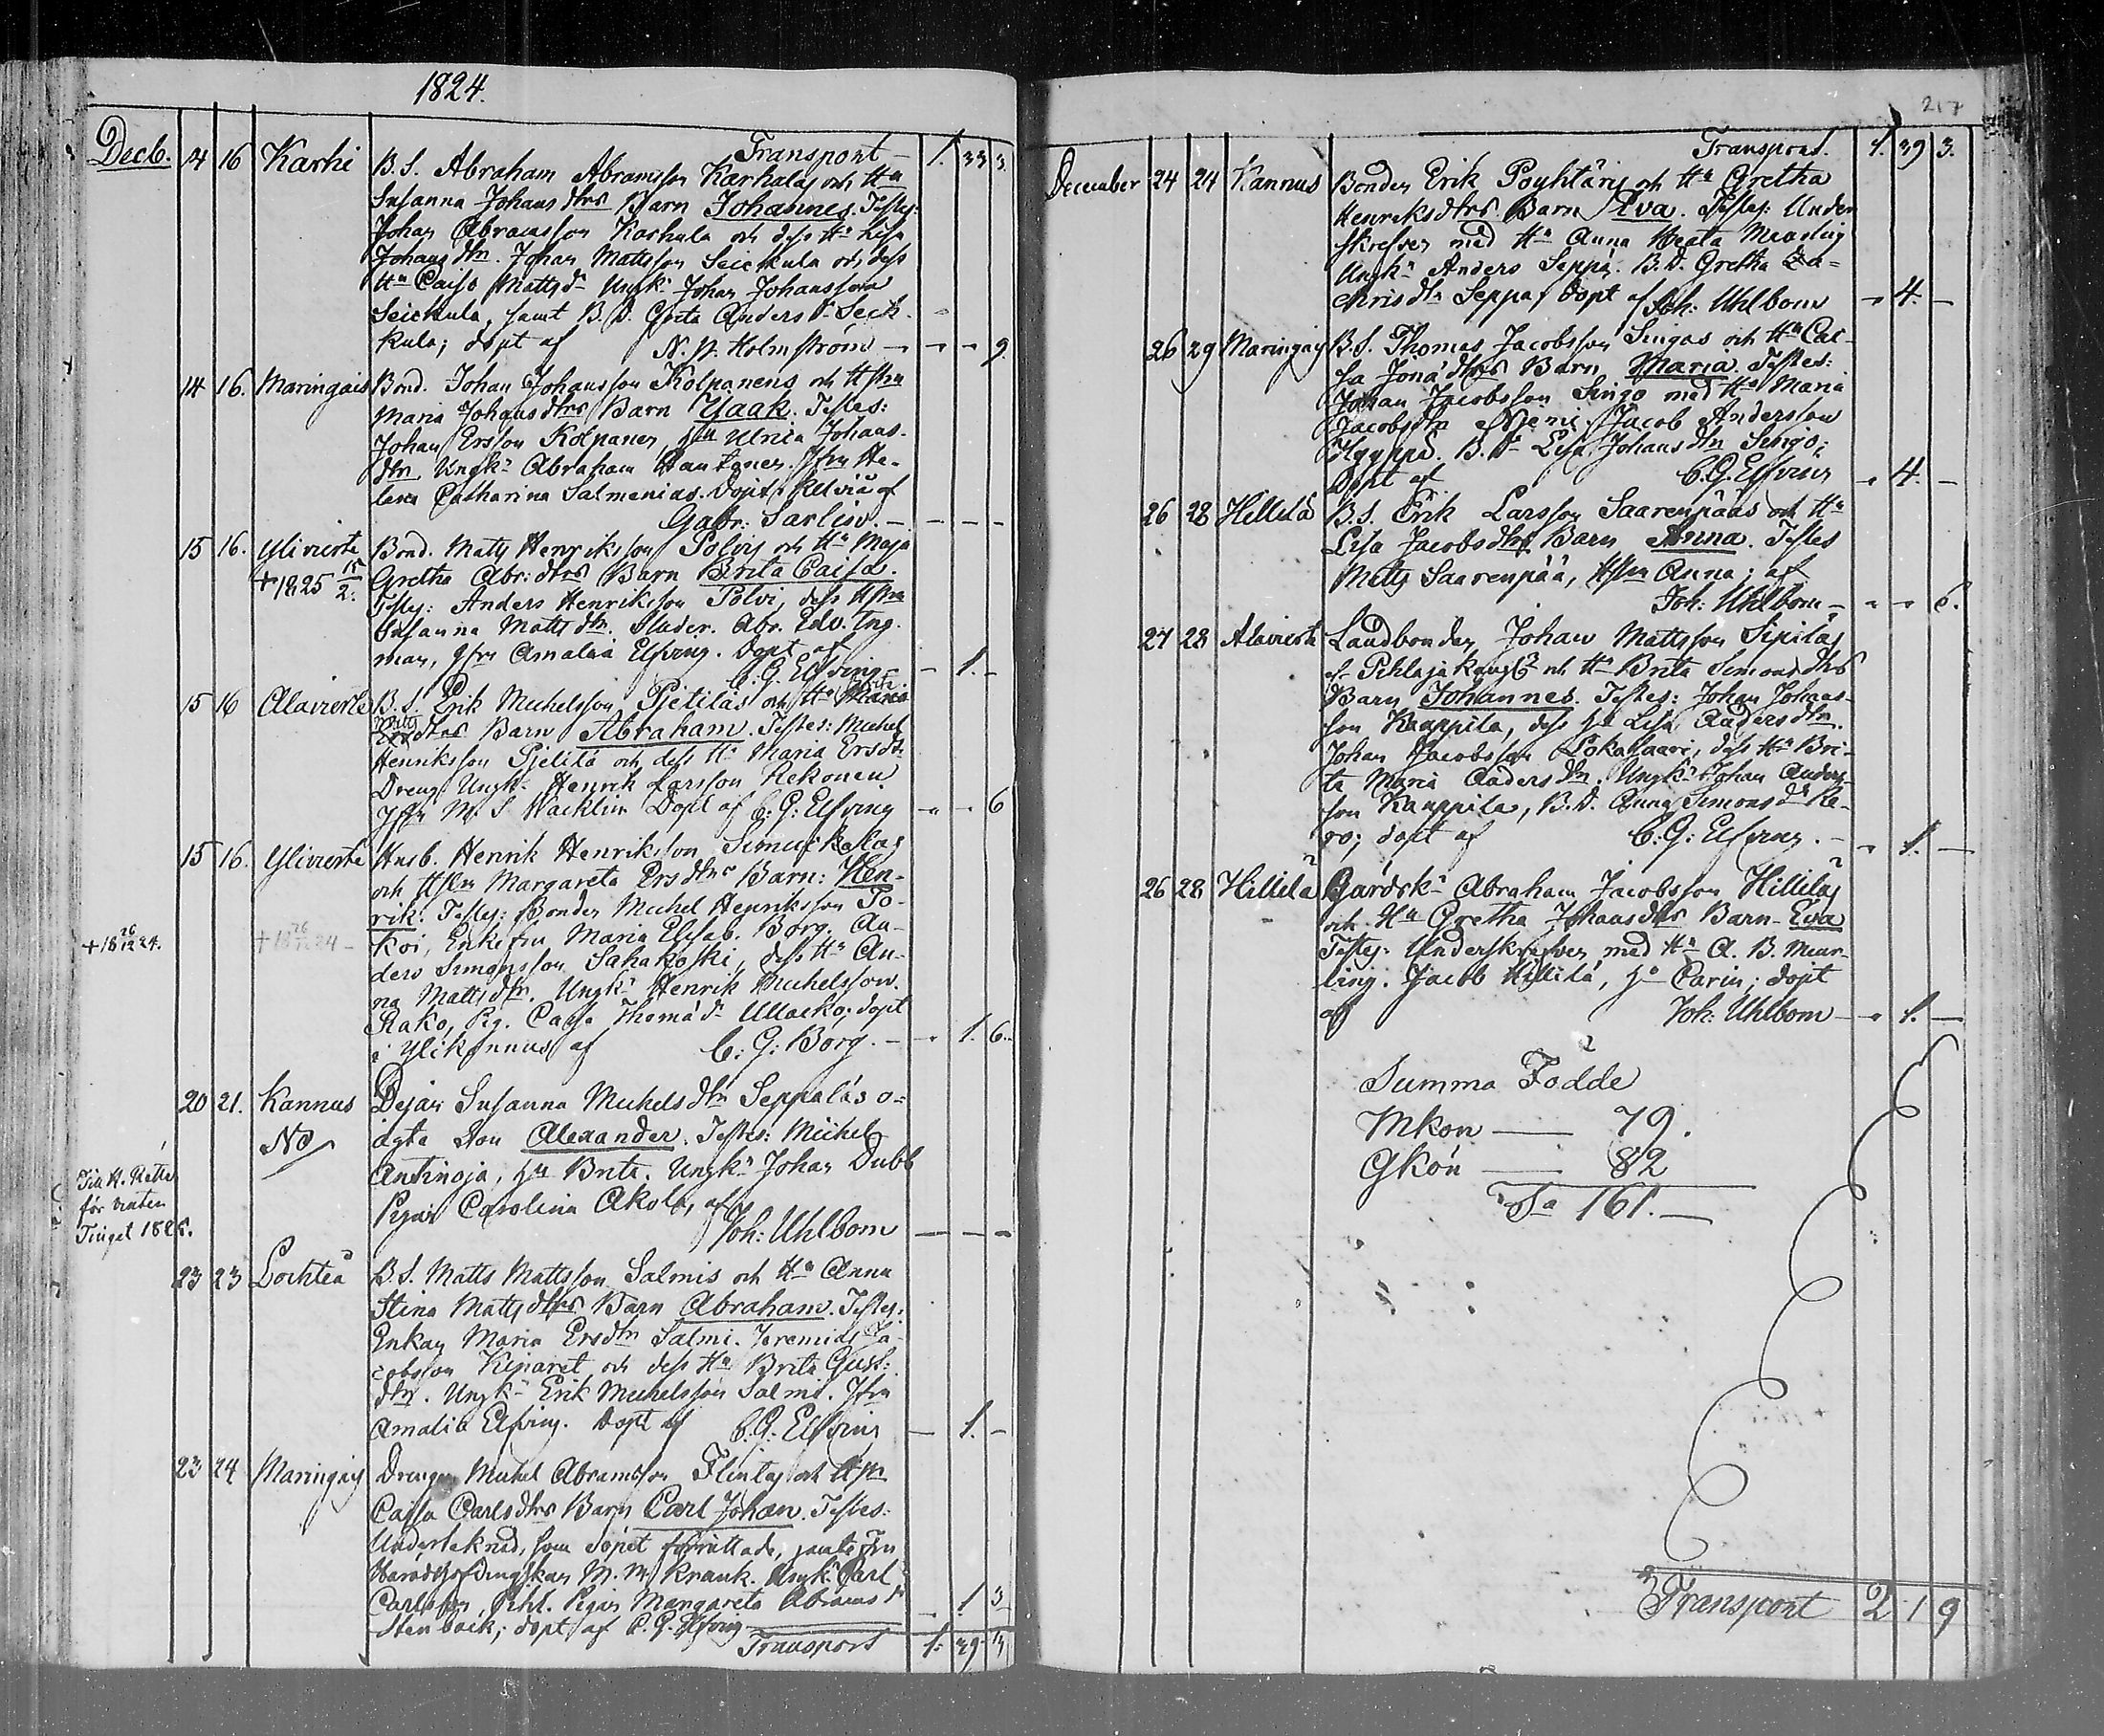 1824.
Transport 1. 33 3.
Decb. 14 16 Karhi B. S. Abraham Abramsson Karhalas och Hu
Susanna Johans dtrs Barn Johannes. Testes:
Johan Abramsson Karhula och dess Hu Lisa
Johans dtr. Johan Mattsson Seickula och dess
Hu Caisa Mattsdr Ungk: Johan Johansson
Seickula, samt B. D. Greta Anders dr Seic-
kula; döpt af N. Holmström 9
14 16. Maringais Bond. Johan Johansson Kolpanens och Hstru
Maria Johansdtrs Barn Isaak. Testes:
Johan Ersson Kolpanen, Hu Ulrica Johans-
dtr, Ungk: Abraham Jfru He-
lena Catharina Salmenius. Döpt i Kelviå af
Gabr: Sarlin.
15 16. Ylivierta Bond. Matts Henriksson Polvis och Hu Maja
+ 1825 15/2. Gretha Abr: dtrs Barn Brita Caisa.
Testes: Anders Henriksson Polvi, dess Hstru
Susanna Matts dtr. Studer. Abr. Edv. Ing-
man, Jfru Amalia Elfving. Döpt af
C. G. Elfving 1.
15 16 Alavierta B. S. Erik Michelsson Pietiläs och Hu Maria Brita
Matts Ersdtrs Barn Abraham. Testes: Michel
Henriksson Pietilä och dess Hu Maria Ersdr.
Dreng Ungk: Henrik Larsson Hekonen
Jfru M. S. Wacklin Döpt af C. G: Elfving 6
15 16. Ylivierta Husb. Henrik Henriksson
och Hstru Margareta Ersdtrs Barn: Hen-
rik. Testes: Bonden Michel Henriksson To-
+ 18 26/12 24. + 18 26/12 24 koi, Enkefru Maria Elisab. Borg. An-
ders Simonsson Sahakoski, dess Hu An-
na Mattsdtr. Ungk: Henrik Michelsson
Rako, Pig. Caisa Thomæ dr Ullacko; döpt
i Ylikannus af C: G: Borg. 1. 6.
20 21. Kannus Pejan Susanna Michels dtr Seppäläs o-
No ägta Son Alexander. Testes: Michel
Antinoja, Hu Brita. Ungk: Johan Dubb
Till H. Rätten
för vinter
Tinget 1825.
Pigan Carolina Akola, af
Joh: Uhlbom
23 23 Lochteå B. S. Matts Mattsson Salmis och Hu Anna
Stina Matts dtrs Barn Abraham. Testes:
Enkan Maria Ersdtr Salmi. Jeremias Ja-
cobsson och dess Hu Brita Gust:
dtr. Ungk: Erik Michelsson Salmi. Jfru
Amalia Elfving. Döpt af C. G. Elfving 1.
23 24 Maringais Drengen Michel Abramsson Flintas och Hstru
Caisa Carlsdtrs Barn Carl Johan. Testes:
Undertecknad, som döpet förrättade, jemte Fru
Häradshöfdingskan M. M. Krank. Ungk: Carl
Carlsson Pihl. Pigan Margareta Abrams dr
Stenback; döpt af C. G. Elfving 1 3
Transport 1. 39 3
217
Transport. 1. 39 3.
December 24 24 Kannus Bonden Erik Pöyhtäris och Hu Gretha
Henriksdtrs Barn Eva. Testes: Under-
skrefven med Hu Anna Beata Meurling
Ungk: Anders Seppä. B. D. Gretha Za-
chrisdtr Seppä; döpt af Joh: Uhlbom 4.
26 29 Maringais B. S. Thomas Jacobsson Singos och Hu Cai-
sa Jonæ dtrs Barn Maria. Testes:
Johan Jacobsson Singo med Hu Maria
Jacobsdtr Jacob Andersson
B. D. Lisa Johansdtr Singo;
Döpt af C. G. Elfving 4.
26 28 Hillilä B. S. Erik Larsson Saarenpääs och Hu
Lisa Jacobsdtrs Barn Anna. Testes
Matts Saarenpää, Hstru Anna; af
Joh: Uhlbom 6.
27 28 Alavierta Landbonden Johan Mattsson Sipiläs
fr. Pihlajakangas och Hu Brita Simonsdtrs
Barn Johannes. Testes: Johan Johans-
son Kauppila, dess Hu Lisa Andersdtr.
Johan Jacobsson Lokalaari, dess Hu Bri-
ta Maria Andersdtr. Ungk: Johan Anders-
son Kauppila, B. D. Anna Simonsdr Ke-
ro; döpt af C: G: Elfving. 1.
26 28 Hillilä Gårdsk: Abraham Jacobsson Hilliläs
och Hu Gretha Johansdtrs Barn Eva
Testes: Underskrefven med Hu A. B. Meur-
ling. Jacob Hillilä, Hu Carin; döpt
af Joh: Uhlbom 1.
Summa Födde
Mkön 79.
Qkön 82
Sa 161.
Transport 2 1 9